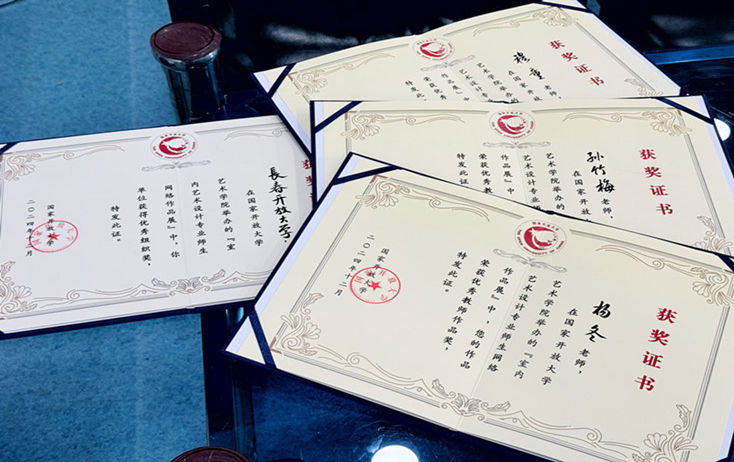 获奖证书
穆
老师，
在国家开放
艺术学院举办的
艺术设计专业师
作品展』中
荣获优秀
特发此证
获奖证书
孙竹梅 老师，
在国家开放
艺术学院举办的『室
艺术设计专业师生
作品展』中，
荣获优秀教
特发此证。
長春开放大学，
在国家开放大学
艺术学院举办的『室
内艺术设计专业师生
网络作品展』中，你
单位获得优秀组织奖，
特发此证。
国家开放大学
二〇二四年十二月
获奖证书
杨冬 老师，
在国家开放大学
艺术学院举办的『室内
艺术设计专业师生网络
作品展』中，您的作品
荣获优秀教师作品奖，
特发此证。
国家开放大学
二〇二四年十二月